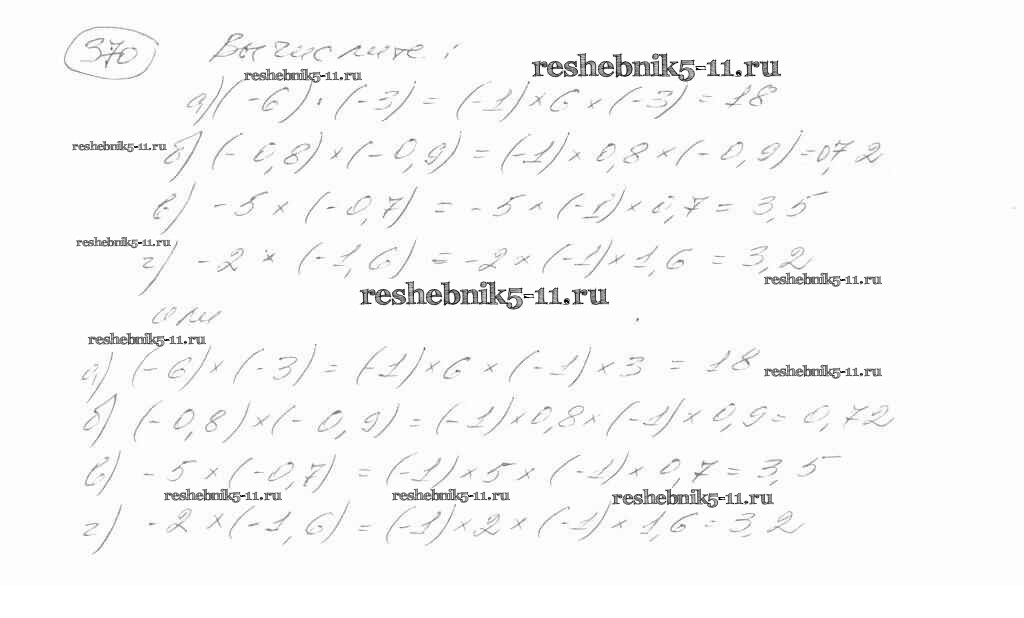 370 Вычислите:
reshebnik5-11.ru
reshebnik5-11.ru
а) (-6) · (-3) = (-1) × 6 × (-3) = 18
reshebnik5-11.ru
б) (-0,8) × (-0,9) = (-1) × 0,8 × (-0,9) = 0,72
в) -5 × (-0,7) = -5 × (-1) × 0,7 = 3,5
reshebnik5-11.ru
г) -2 × (-1,6) = -2 × (-1) × 1,6 = 3,2
reshebnik5-11.ru
reshebnik5-11.ru
или
reshebnik5-11.ru
а) (-6) × (-3) = (-1) × 6 × (-1) × 3 = 18
reshebnik5-11.ru
б) (-0,8) × (-0,9) = (-1) × 0,8 × (-1) × 0,9 = 0,72
в) -5 × (-0,7) = (-1) × 5 × (-1) × 0,7 = 3,5
reshebnik5-11.ru reshebnik5-11.ru reshebnik5-11.ru
г) -2 × (-1,6) = (-1) × 2 × (-1) × 1,6 = 3,2